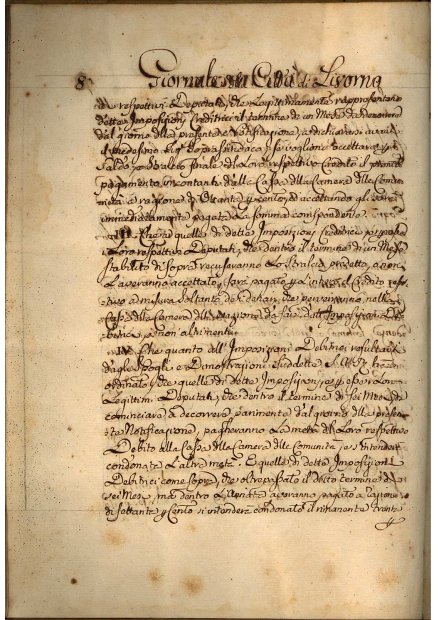 8 Giornale della Città di Livorno
respettivi Deputati, che legittimamente rappresentano
dette Imposizioni Creditrici il termine di un Mese da decorrere
dal giorno della presente Notificazione, a dichiarare avanti
il predesimo Sig.
saldo, e stralcio finale del loro respettivo Credito il
pagamento in contanti dalla Cassa della Camera delle Comu
nità a ragione di per cento, e accettando gli sarà
immediatamente pagata la somma corrispondente.
III Che a quelle di dette Imposizioni Creditrici, o per esse
loro respettivi Deputati, che dentro il termine di un Mese
stabilito di sopra recusaranno lo stralcio predetto, o non
l'averanno accettato, sarà pagato l'intero Credito respet
tivo a misura soltanto dei denari, che perverranno nella
Cassa della Camera delle da suddette Imposizioni De
bitrici, e non altrimenti
IV Che quanto all' Imposizioni Debitrici resultanti
dagli Spogli e Dimostrazioni suddette S.A.R.
ordinato, che quelle di dette Imposizioni, o per esse loro
Legittimi Deputati, che dentro il termine di sei Mesi da
cominciare a decorrere parimente dal giorno della presen
te Notificazione, pagheranno la metà del loro respettivo
Debito alla Cassa della Camera delle Comunità, s'intenderà
condonata l'altra metà. E quelle di dette Imposizioni
Debitrici come sopra, che oltrepassato il detto termine di
sei Mesi, ma dentro l'Anno averanno pagato a ragione
di settanta per Cento si intenderà condonato il rimanente trenta